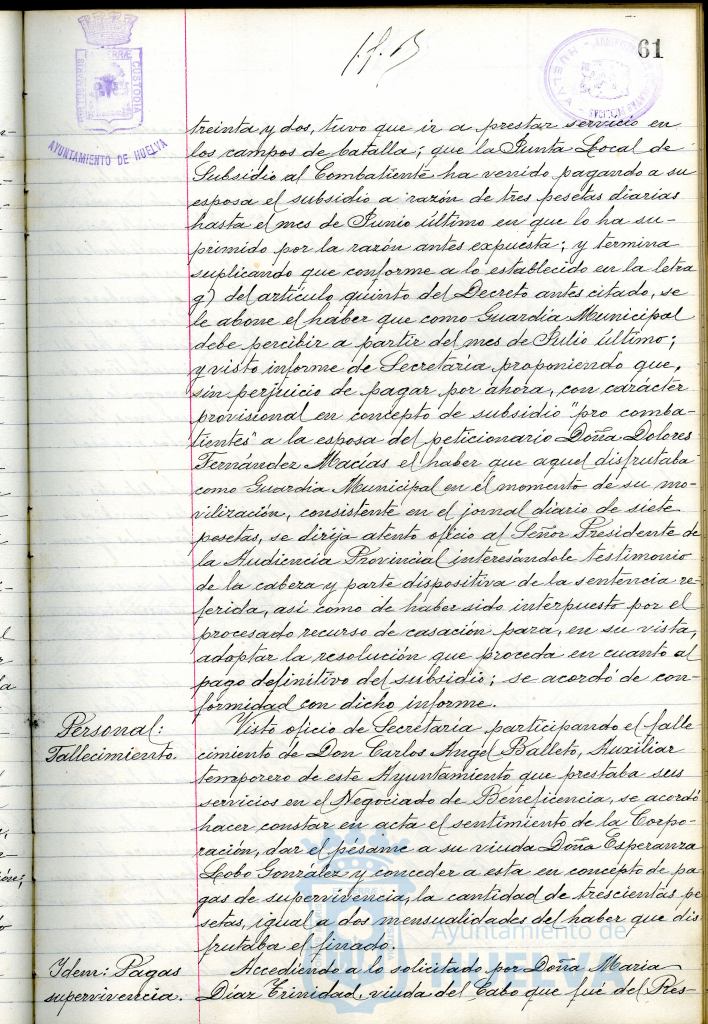 61
AYUNTAMIENTO DE HUELVA
treinta y dos, tuvo que ir a prestar servicio en
los campos de batalla; que la Junta Local de
Subsidio al Combatiente ha venido pagando a su
esposa el subsidio a razón de tres pesetas diarias
hasta el mes de Junio último en que lo ha su-
primido por la razón antes expuesta; y termina
suplicando que conforme a lo establecido en la letra
g) del artículo quinto del Decreto antes citado, se
le abone el haber que como Guardia Municipal
debe percibir a partir del mes de Julio último;
y visto informe de Secretaría proponiendo que,
sin perjuicio de pagar por ahora, con carácter
provisional en concepto de subsidio "pro comba-
tientes" a la esposa del peticionario Doña Dolores
Fernández Macías el haber que aquel disfrutaba
como Guardia Municipal en el momento de su mo-
vilización, consistente en el jornal diario de siete
pesetas, se dirija atento oficio al Señor Presidente de
la Audiencia Provincial interesándole testimonio
de la cabeza y parte dispositiva de la sentencia re-
ferida, así como de haber sido interpuesto por el
procesado recurso de casación para, en su vista,
adoptar la resolución que proceda en cuanto al
pago definitivo del subsidio; se acordó de con-
formidad con dicho informe.
Personal:
Fallecimiento.
Visto oficio de Secretaría participando el falle-
cimiento de Don Carlos Angel Balleto, Auxiliar
temporero de este Ayuntamiento que prestaba sus
servicios en el Negociado de Beneficencia, se acordó
hacer constar en acta el sentimiento de la Corpo-
ración, dar el pésame a su viuda Doña Esperanza
Lobo Gonzalez y conceder a esta en concepto de pa-
gas de supervivencia, la cantidad de trescientas pe-
setas, igual a dos mensualidades del haber que dis-
frutaba el finado.
Idem: Pagas
supervivencia.
Accediendo a lo solicitado por Doña Maria
Díaz Trinidad, viuda del Cabo que fué del Res-
Ayuntamiento de
HUELVA